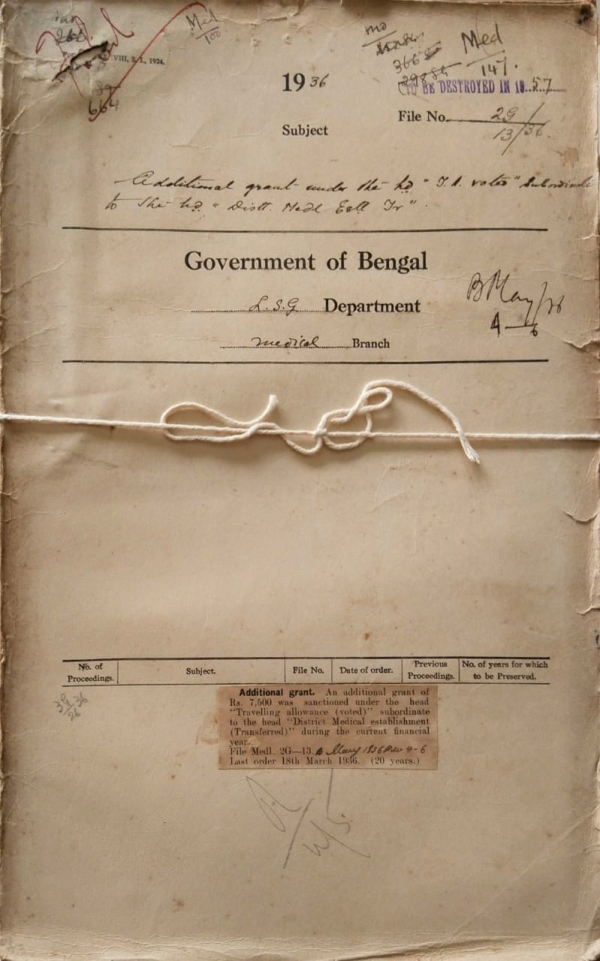 Med
100
mo
Med
147.
VIII, S. I., 1934.
664
19 36
TO BE DESTROYED IN 19..57
File No. 2G/
13/36
Subject
Additional grant under the hd "T.A. voted" Subordinate
to the hd "Distt. Medl Estt Tr".
Government of Bengal
L.S.G Department
medical Branch
B May/36
4-6
No. of Proceedings.
Subject.
File No.
Date of order.
Previous Proceedings.
No. of years for which to be Preserved.
Additional grant. An additional grant of
Rs. 7,500 was sanctioned under the head
"Travelling allowance (voted)" subordinate
to the head "District Medical establishment
(Transferred)" during the current financial
year.
File Medl. 2G—13. B May 1936 4-6
Last order 18th March 1936. (20 years.)